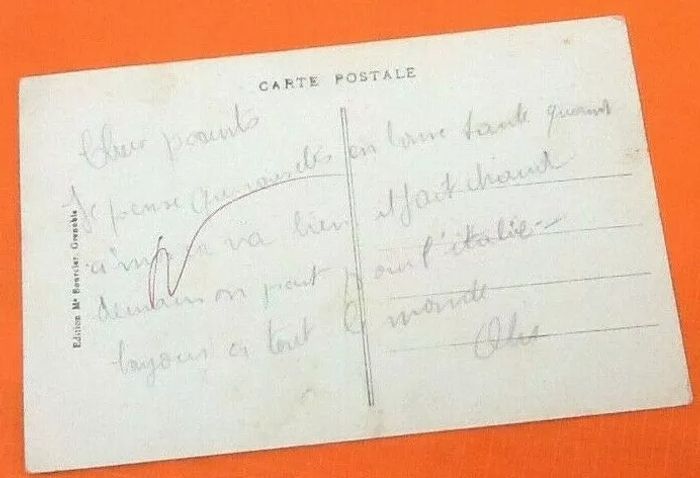 CARTE POSTALE
Cher parents
Je pense que vous êtes en bonne santé quant
a moi ça va bien il fait chaud
demain on part pour l'italie
a tout le monde
Edition Me Bourcier, Grenoble